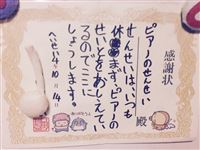 感謝状
ピアノのせんせい 殿
せんせいは、いつも
休まず、ピアノの
せいとをおしえてい
るので、ここに
しょうします。
へいせい
10月
ありがとう